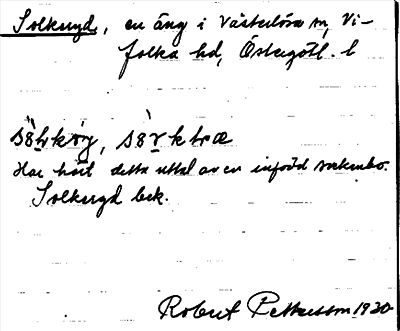 Solkeryd, en äng i Västerlösa sn, Vi-
folka hd, Östergötl. l
Har hört detta uttal av en infödd sockenbo.
Solkeryd bek.
Robert Pettersson 1930